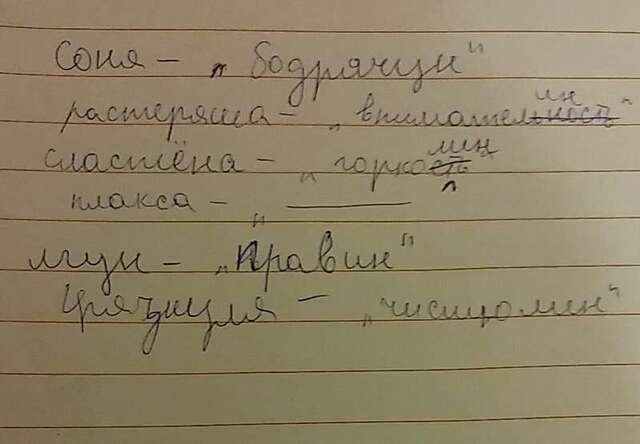 Соня – „бодрячин"
растеряша – „внимательностьин"
сластёна – „горкостьмин"
плакса – „ ———
лгун – „правин"
грязнуля – „чистомин"